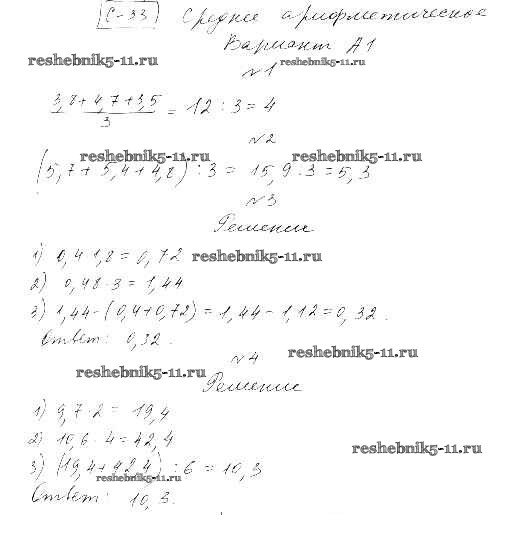 С-33 Среднее арифметическое
Вариант А1
reshebnik5-11.ru reshebnik5-11.ru
№1
3,8+4,7+3,5
/3 = 12:3=4
№2
reshebnik5-11.ru reshebnik5-11.ru
(5,7+5,4+4,8):3= 15,9:3=5,3
№3
Решение
1) 0,4·1,8=0,72 reshebnik5-11.ru
2) 0,48·3=1,44
3) 1,44-(0,4+0,72)=1,44-1,12=0,32.
Ответ: 0,32.
№4 reshebnik5-11.ru
reshebnik5-11.ru
Решение
1) 9,7·2= 19,4
2) 10,6·4=42,4
reshebnik5-11.ru
3) (19,4+42,4):6=10,3
reshebnik5-11.ru
Ответ: 10,3.